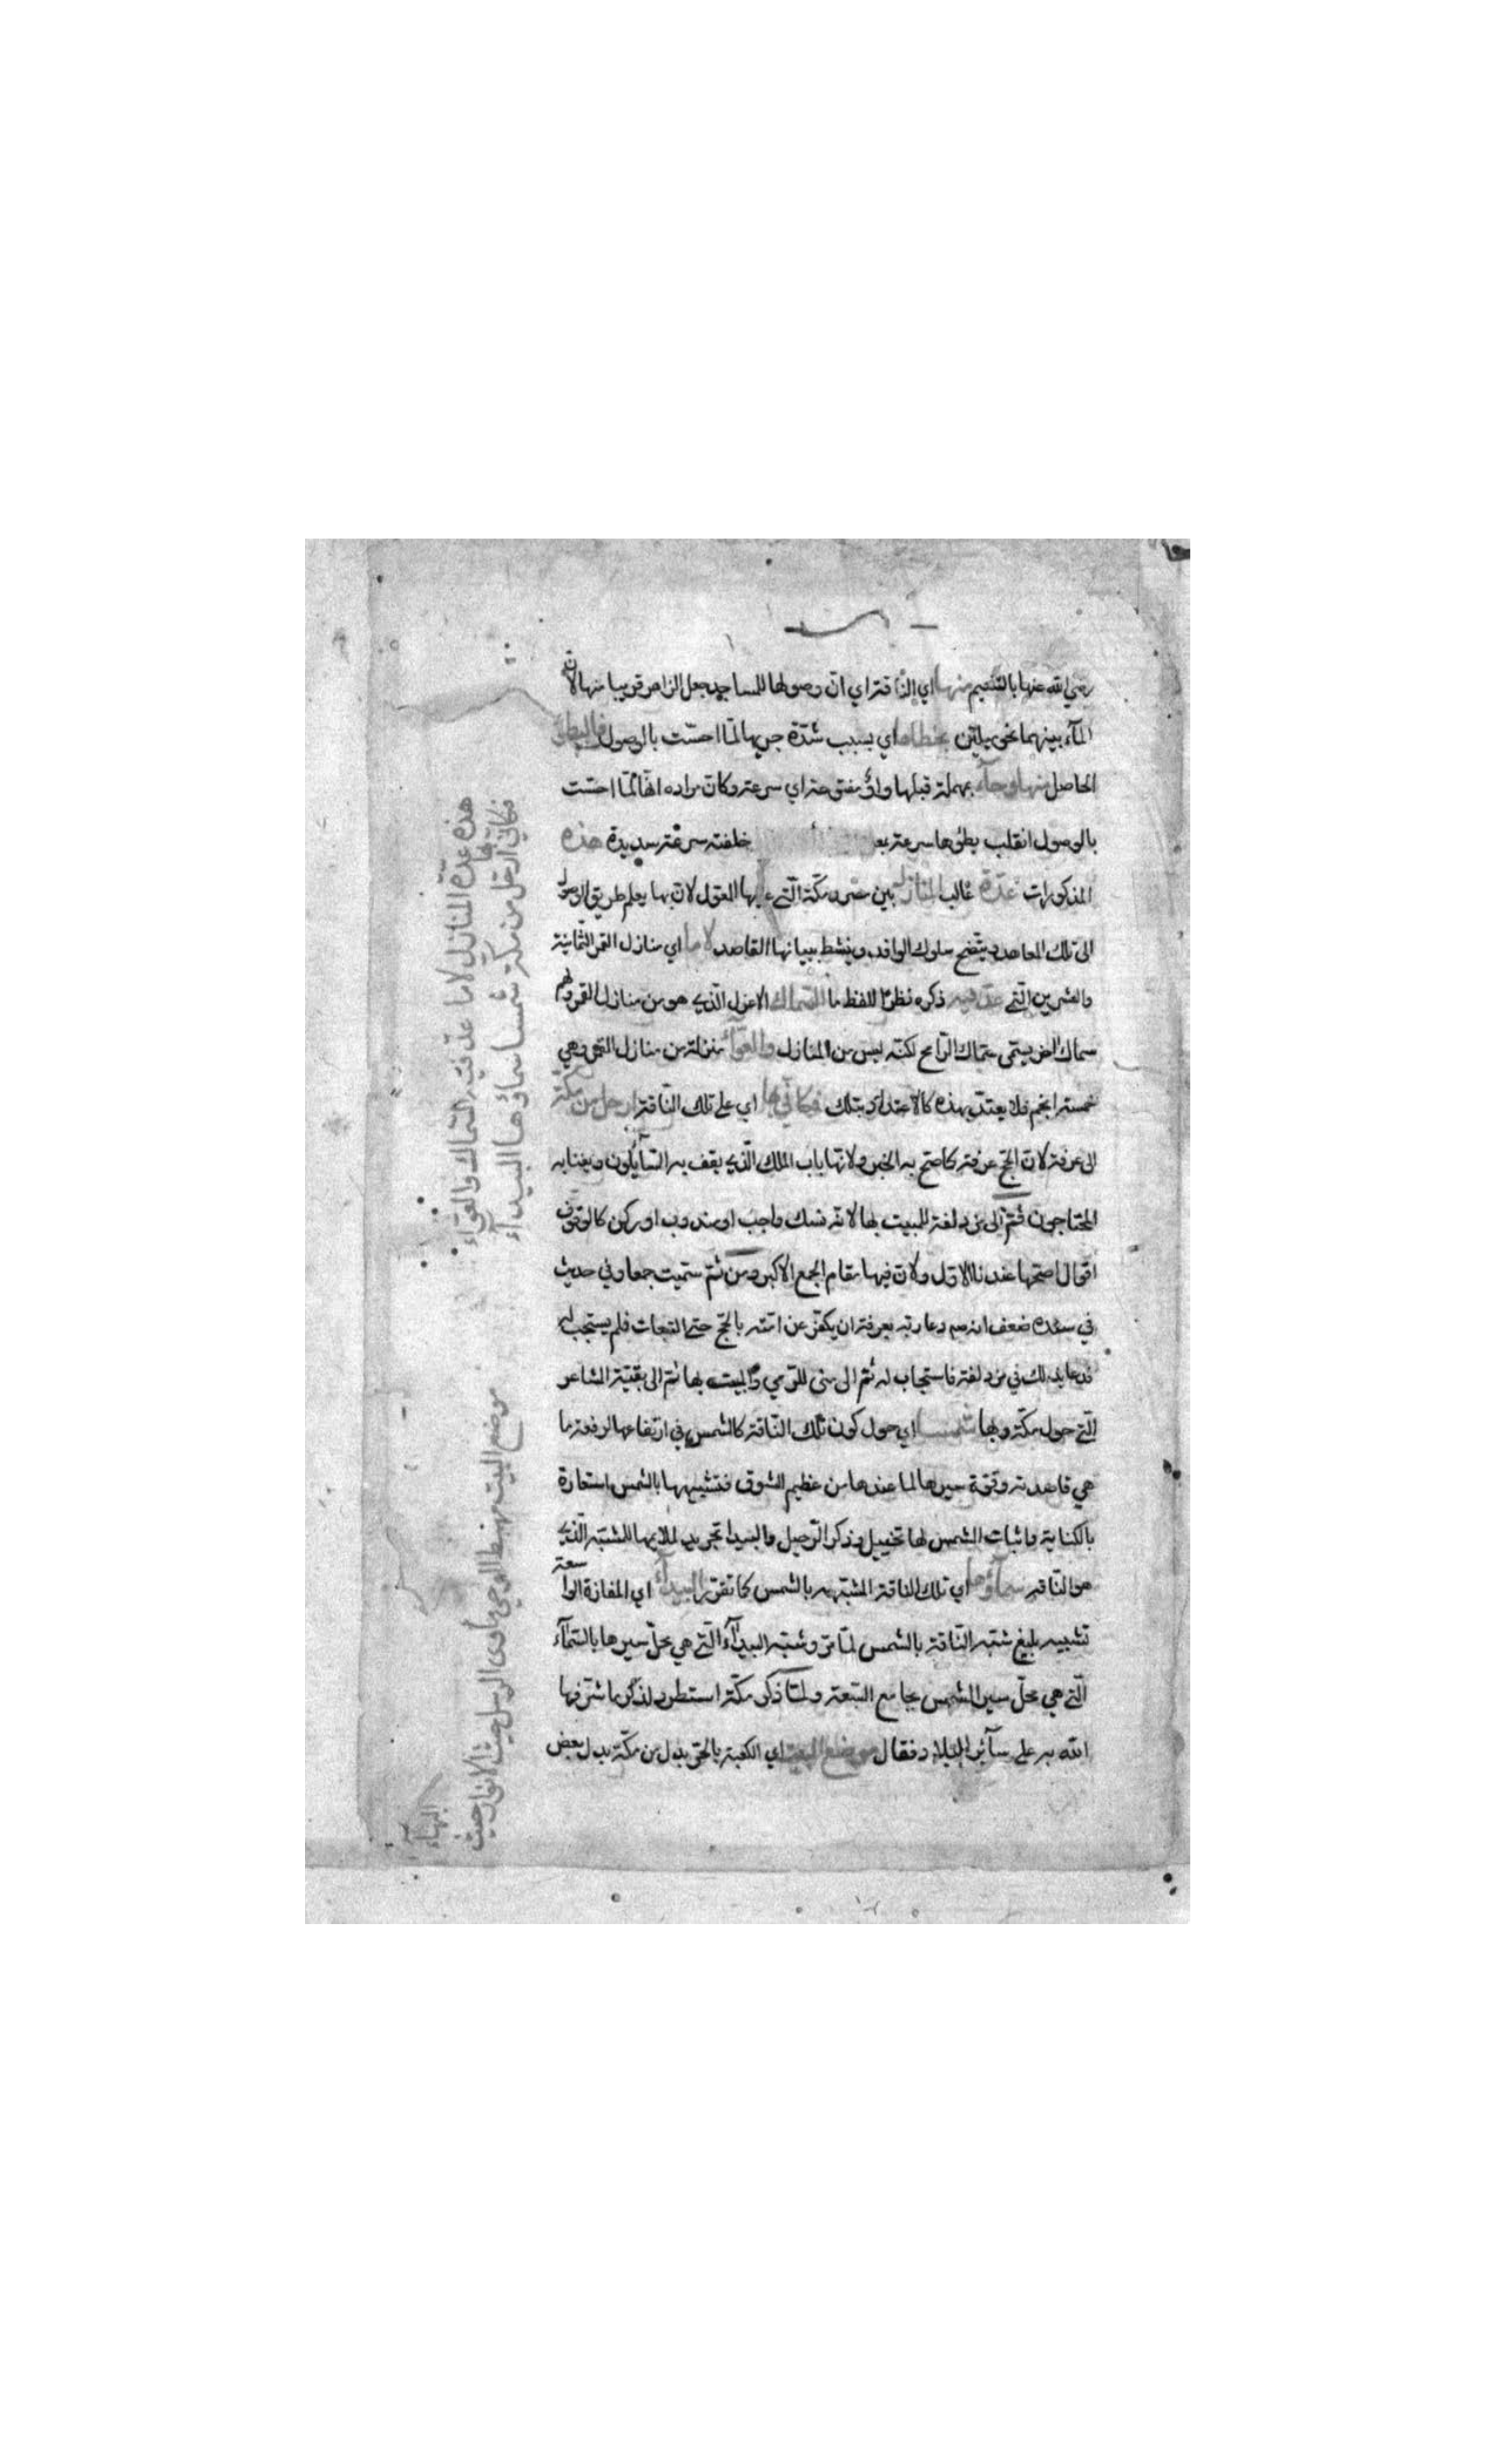 رضي الله عنها بالتنعيم منها اي الناقة اي ان وصولها للمساجد جعل الزاهر قريبا منها لان
الماء بينهما نحو ميلين بخطاها اي بسبب شدة جريها لما احست بالوصول فالبطؤ
الحاصل منها وحاء بمهملة قبلها واو مفتوحة اي سرعة وكان مراده انها لما احست
بالوصول انقلب بطؤها سرعة خلفته سرعة شديدة هذه
المذكورات عدة غالب المنازل بين مصر ومكة التي عليها المعول لان بها يعلم طريق الوصول
الى تلك المعاهد ويتضح سلوك الوافد وينشط ببيانها القاصد لا ما اي منازل القمر الثمانية
والعشرين التي عد فيه ذكره نظرا للفظ ما السماك الاعزل الذي هو من منازل القمر ولهم
سماك اخر يسمى سماك الرامح لكنه ليس من المنازل والعواء منزلة من منازل القمر وهي
خمسة انجم فلا يعتد بهذه كالاعتداد بتلك فكاني بها اي على تلك الناقة ارحل من مكة
الى عرفة لان الحج عرفة كما صح به الخبر ولانها باب الملك الذي يقف به السائلون وبفنائه
المحتاجون ثم الى مزدلفة للمبيت بها لانه نسك واجب او مندوب او ركن كالوقوف
اقوال اصحها عندنا الاول ولان فيها مقام الجمع الاكبر ومن ثم سميت جمعا وفي حديث
في سنده ضعف انه صم دعا ربه بعرفة ان يكفر عن امته بالحج حتى التبعات فلم يستجب له
فدعا بذلك في مزدلفة فاستجاب له ثم الى منى للرمي والمبيت بها ثم الى بقية المشاعر
التي حول مكة وبها شمسا اي حول كون تلك الناقة كالشمس في ارتفاعها لرفعة ما
هي قاصدته وقوة سيرها لما عندها من عظيم الشوق فتشبيهها بالشمس استعارة
بالكناية واثبات الشمس لها تخييل وذكر الرحيل والبيدا تجريد لملايمها للمشبه الذي
هو الناقة سماؤها اي تلك الناقة المشبهه بالشمس كما تقرر البيداء اي المفازة الواسعة
تشبيه بليغ شبه الناقة بالشمس لما مر وشبه البيداء التي هي محل سيرها بالسماء
التي هي محل سير الشمس بجامع السعة ولما ذكر مكة استطرد لذكر ما شرفها
الله به على سائر البلاد فقال موضع البيت اي الكعبة بالجر بدل من مكة بدل بعض
هذه عدة المنازل لا ما عد فيه السماك والعواء
فكاني بها ارحل من مكة شمسا سماؤها البيداء
موضع البيت مهبط الوحي مأوى الرسل حيث الانوار حيث
البهاء